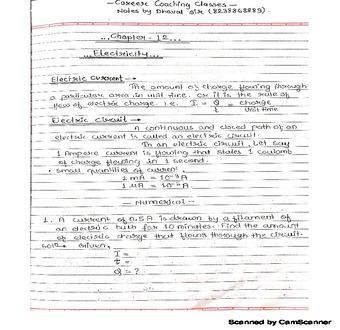 - Career Coaching Classes -
Notes by Dhaval Sir (8238868889).
...Chapter - 12...
...Electricity...
Electric current →
The amount of charge flowing through
a particular area in unit time. or it is the rate of
flow of electric charge. i.e. I = Q/t = charge/Unit time
Electric circuit →
A continuous and closed path of an
electric current is called an electric circuit.
In an electric circuit, Let say
1 Ampere current is flowing that states 1 coulomb
of charge flowing in 1 second.
• small quantities of current,
1 mA = 10⁻³A
1 μA = 10⁻⁶A
- Numerical -
1. A current of 0.5A is drawn by a filament of
an electric bulb for 10 minutes. Find the amount
of electric charge that flows through the circuit.
Given,
I =
t =
Q = ?
Scanned by CamScanner